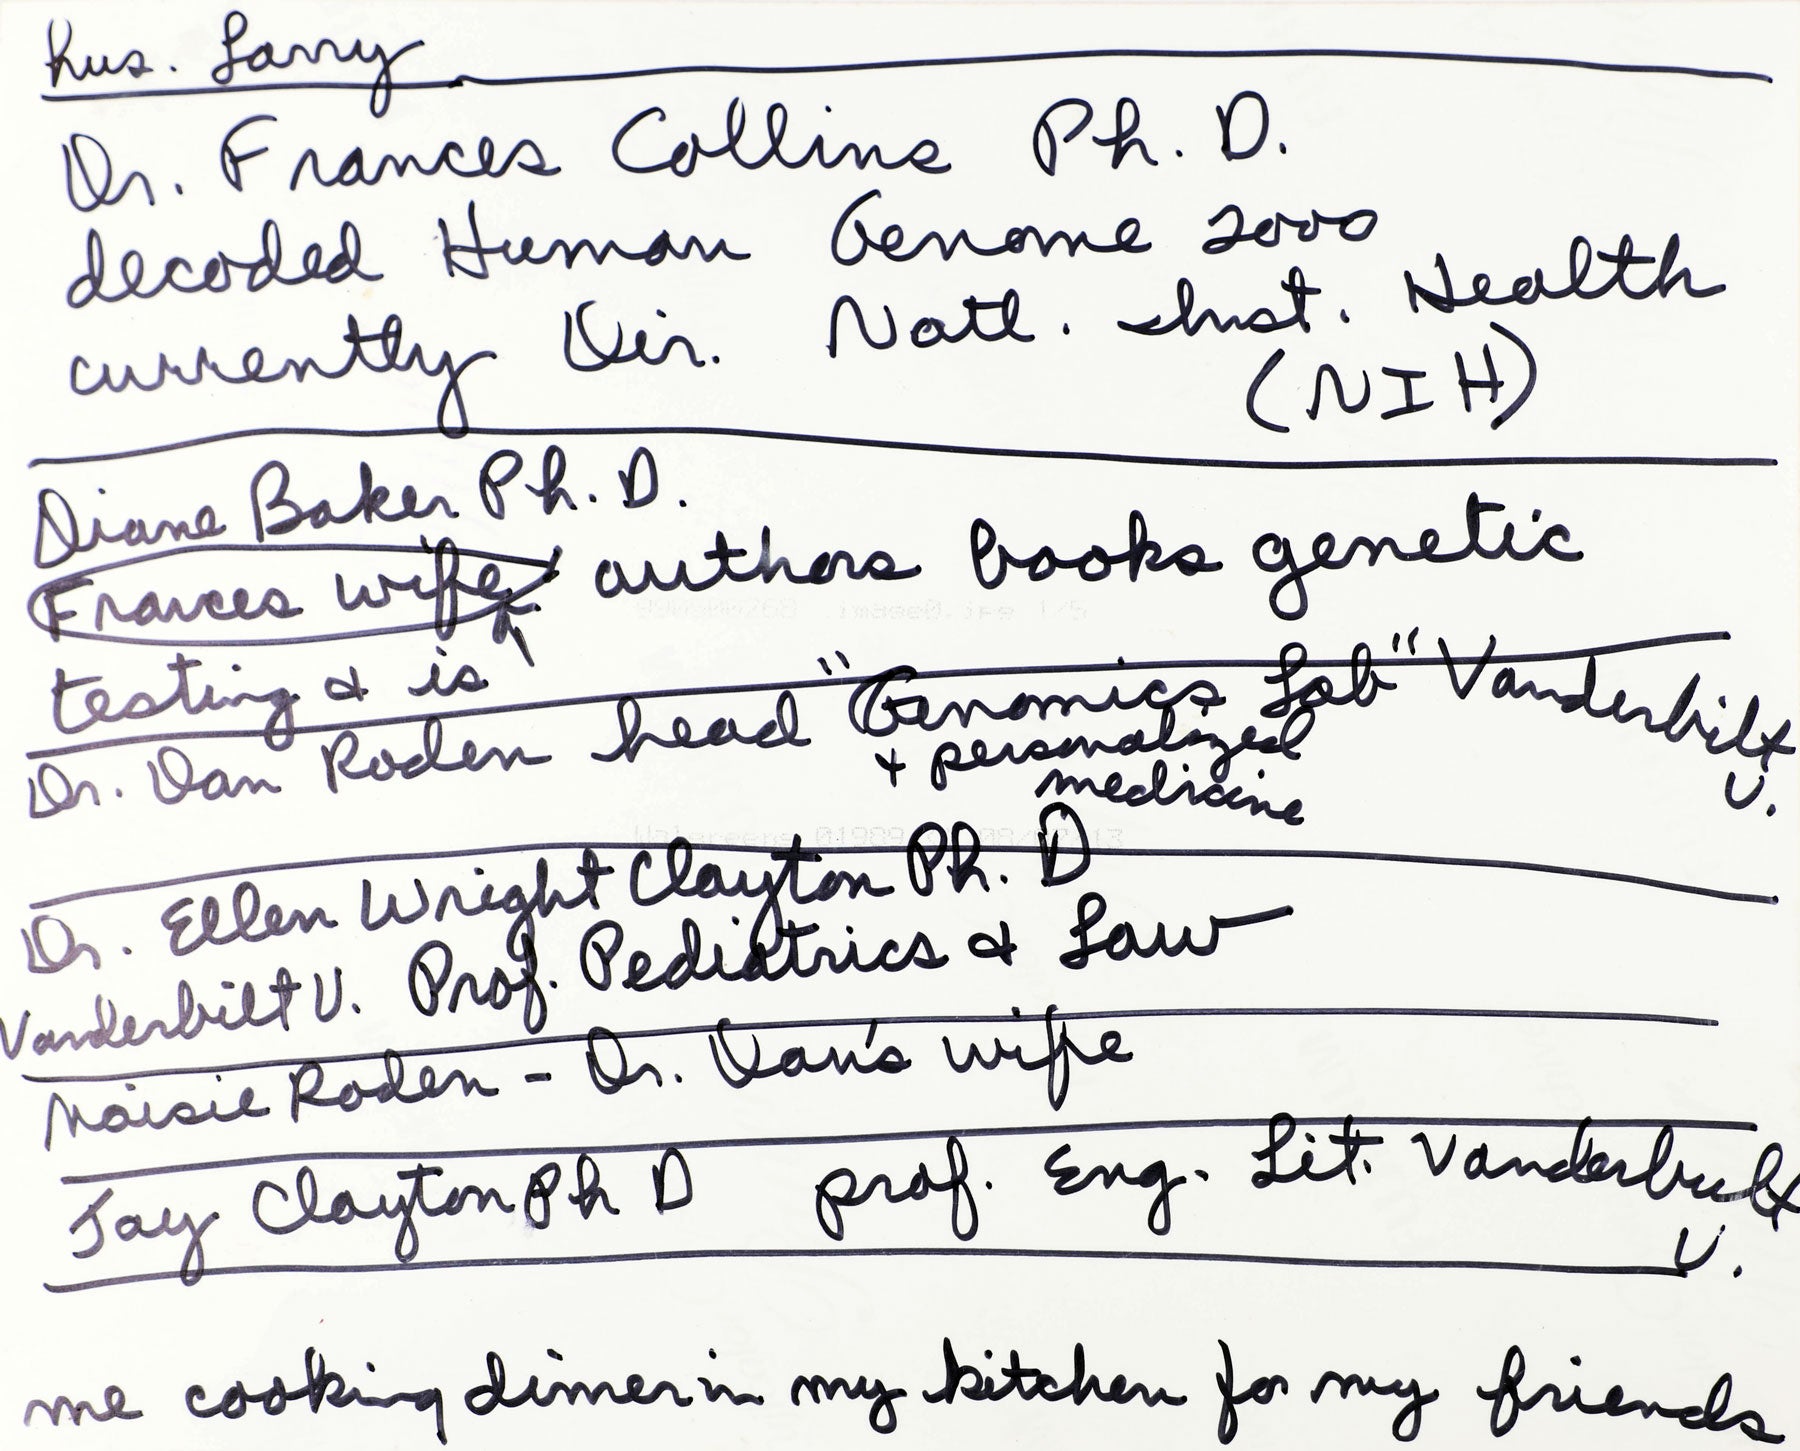 hus. Larry
Dr. Frances Collins Ph. D.
decoded Human Genome 2000
currently Dir. Natl. Inst. Health
(NIH)
Diane Baker Ph. D.
Frances wife authors books genetic
testing & is
Dr. Dan Roden head "Genomics Lab" Vanderbilt
+ personalized
medicine U.
Dr. Ellen Wright Clayton Ph. D
Vanderbilt U. Prof. Pediatrics & Law
Maisie Roden - Dr. Dan's wife
Jay Clayton Ph D prof. Eng. Lit. Vanderbuilt
U.
me cooking dinner in my kitchen for my friends